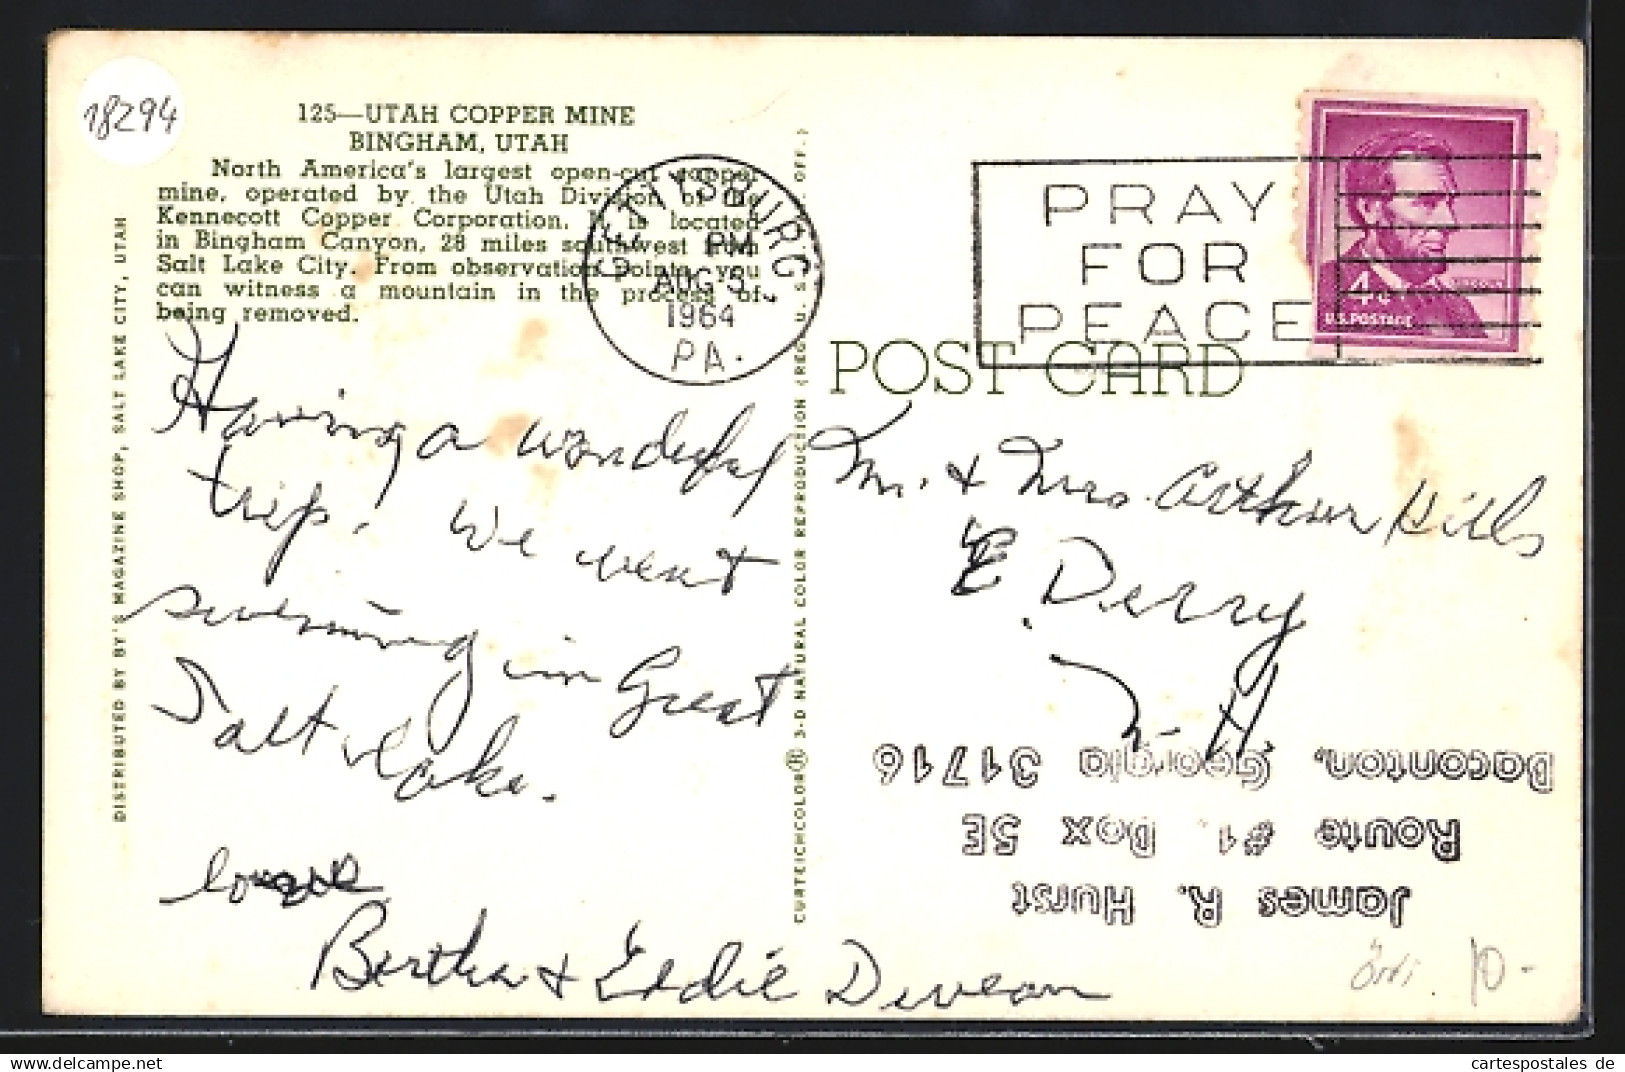 18294
125—UTAH COPPER MINE
BINGHAM, UTAH
North America's largest open-cut copper
mine, operated by the Utah Division of the
Kennecott Copper Corporation. It is located
in Bingham Canyon, 28 miles southwest from
Salt Lake City. From observation points, you
can witness a mountain in the process of
being removed.
DISTRIBUTED BY BY'S MAGAZINE SHOP, SALT LAKE CITY, UTAH
GETTYSBURG
PM
AUG 5
1964
PA.
PRAY
FOR
PEACE
4¢
U.S. POSTAGE
POST CARD
CURTEICHCOLOR ® 3-D NATURAL COLOR REPRODUCTION (REG. U. S. PAT. OFF.)
Having a wonderful
trip. We went
swimming in Great
Salt Lake.
love
Bertha & Eddie Deveau
Mr. & Mrs. Arthur Hills
E. Derry
N. H.
James R. Hurst
Route #1, Box 5E
Baconton, Georgia 31716
10-
delcampe.net
cartespostales de